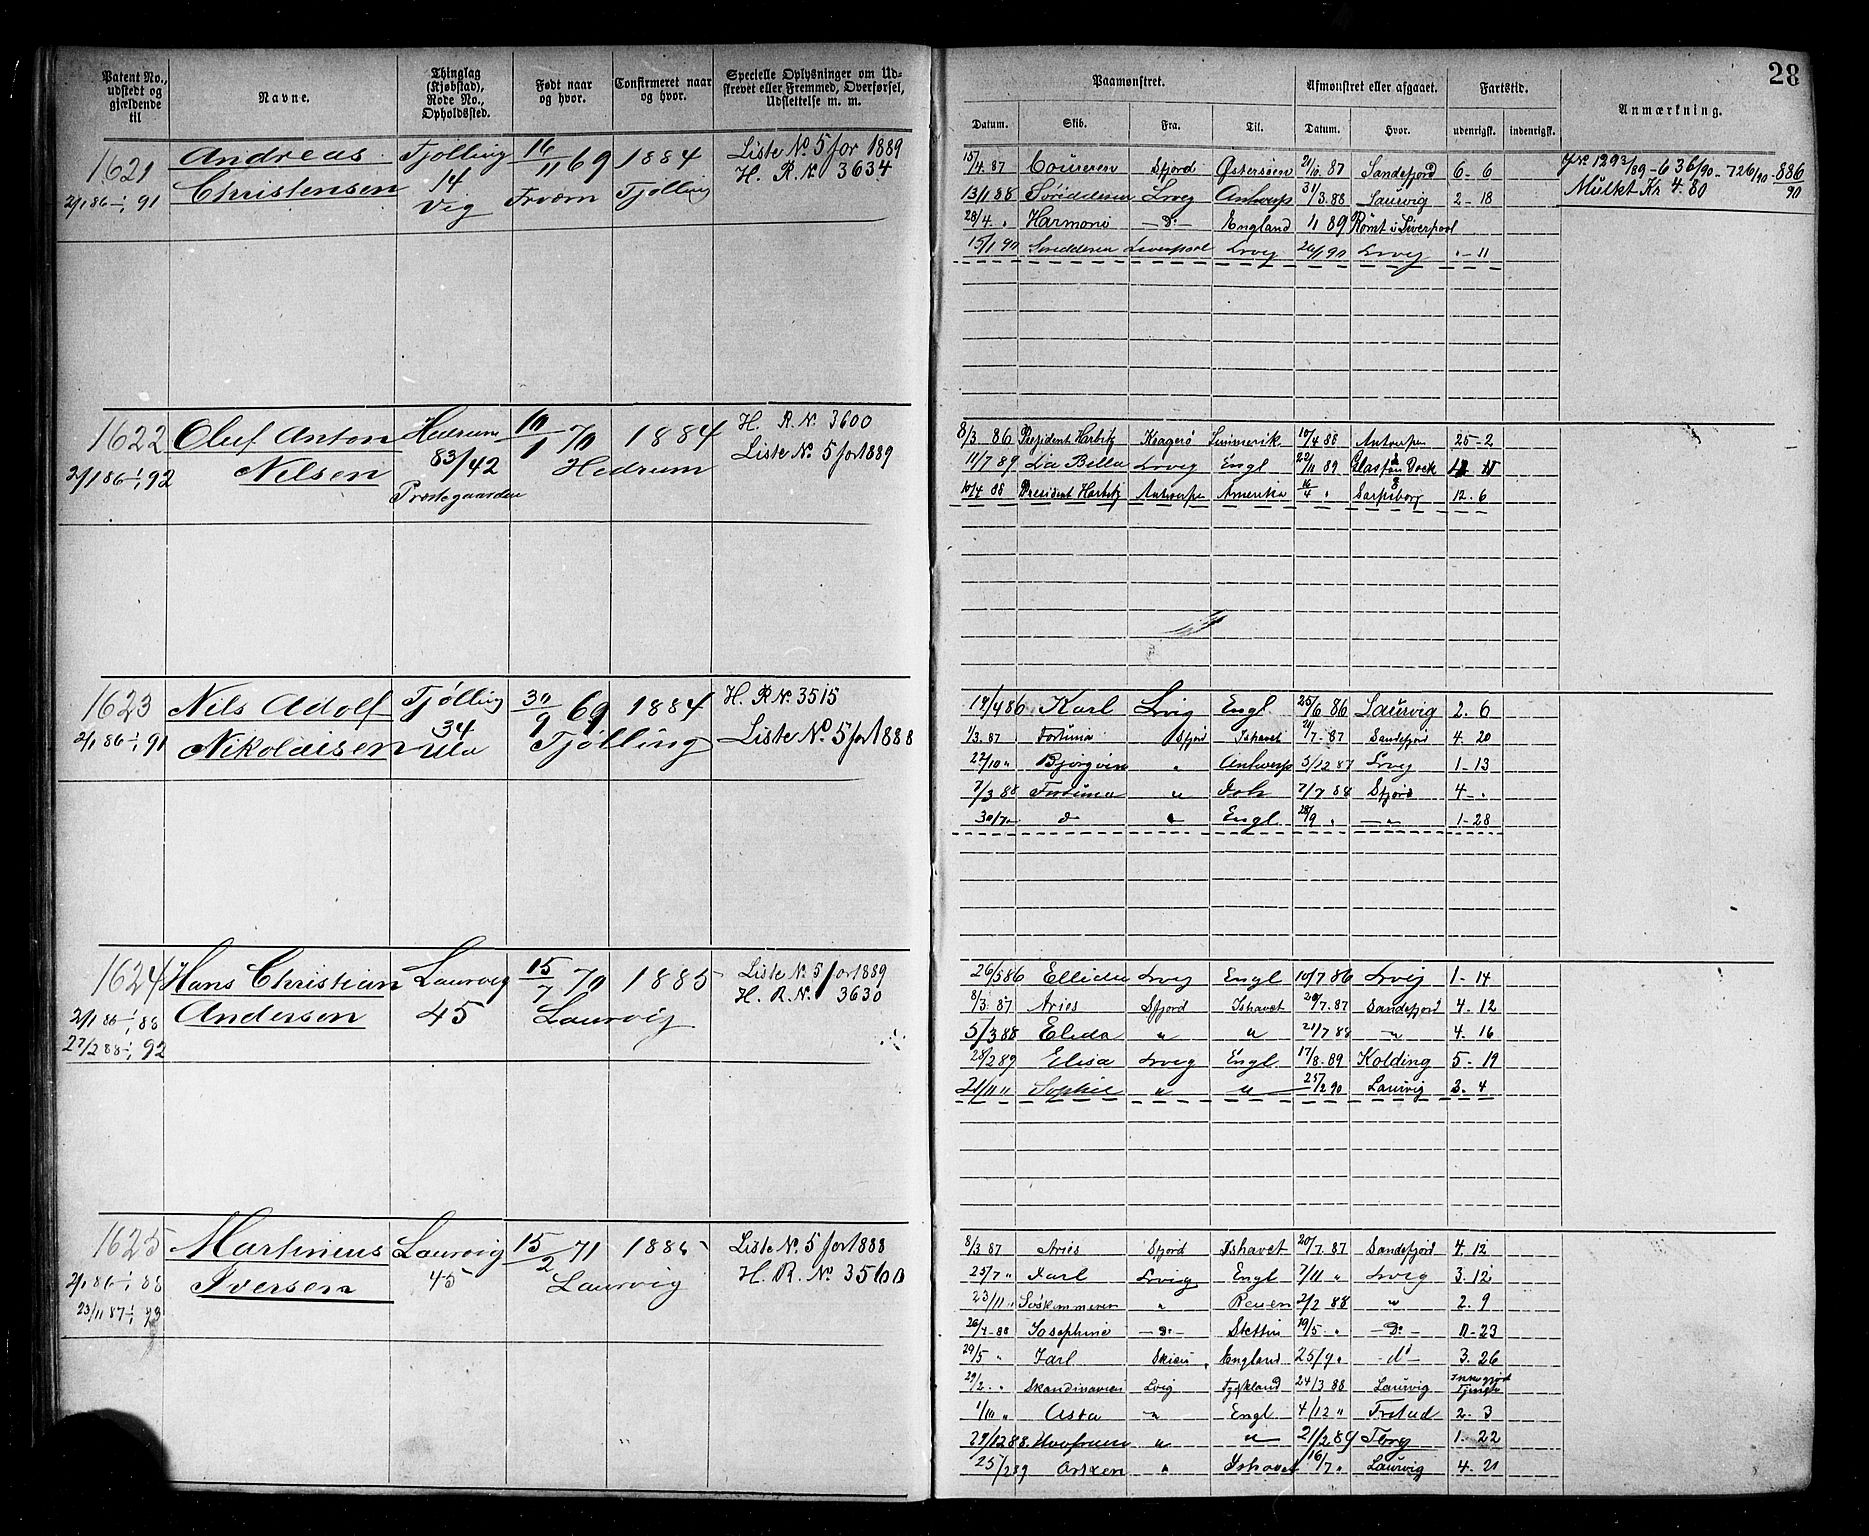 Patent No., udstedt og gjældende til | Navne. | Thinglag (Kjøbstad), Rode No., Opholdssted. | Født naar og hvor. | Confirmeret naar og hvor. | Specielle Oplysninger om Udskrevet eller Fremmed, Overførsel, Udslettelse m. m.
1621 | Andreas | Tjølling | 16/11 69 | 1884 | Liste No. 5 for 1889
2/1 86 - 1/1 91 | Christensen | 14 Vig | Tjølling | H. R. No. 3634
1622 | Oluf Anton | Hedrum | 10/1 70 | 1884 | H. R. No. 3600
2/1 86 - 1/1 92 | Nilsen | 83/42 | Hedrum | Liste No. 5 for 1889
Prestegaarden
1623 | Nils Adolf | Tjølling | 30/9 69 | 1884 | H. R. No. 3515
2/1 86 - 1/1 91 | Nikolaisen | 34 Ula | Tjølling | Liste No. 5 for 1888
1624 | Hans Christian | Laurvig | 15/7 70 | 1885 | Liste No. 5 for 1889
2/1 86 - 1/1 88 | Andersen | 45 | Laurvig | H. R. No. 3630
27/2 88 - 1/1 92
1625 | Martinius | Laurvig | 15/2 71 | 1885 | Liste No. 5 for 1888
2/1 86 - 1/1 88 | Iversen | 45 | Laurvig | H. R. No. 3560
23/11 87 - 1/1 93
28
Paamønstret. | Afmønstret eller afgaaet. | Fartstid. | Anmærkning.
Datum. | Skib. | Fra. | Til. | Datum. | Hvor. | udenrigsk. | indenrigsk.
15/4 87 | Sfjord | Østersøen | 21/10 87 | Sandefjord | 6 - 6
13/1 88 | Lvig | Antwerp | 31/3 88 | Laurvig | 2 - 18 | Mulkt Kr. 4.80
28/4 " | Harmoni | - Do - | England | 1/1 89 | Rømt i Liverpool
15/1 90 | Liverpool | Lvig | 26/1 90 | Lvig | " - 11
8/3 86 | President Harbitz | Kragerø | 10/4 88 | Antwerpen | 25 - 2
11/7 89 | La Bella | Lvig | Engl | 22/11 89
10/4 88 | President Harbitz | Antwerpen | Amerika | 16/4 " | Sarpsborg | 12 . 6
19/4 86 | Karl | Lvig | Engl | 25/6 86 | Laurvig | 2. 6
1/3. 87 | Fortuna | Sfjord | Ishavet | 21/7. 87 | Sandefjord | 4. 20
22/10 " | Bjørgvin | " | Antwerp | 5/12 87 | Lvig | 1 - 13
7/3 88 | Fortuna | " | Ish | 7/7 88 | Sfjord | 4 - "
30/7 " | do | " | Engl. | 28/9 " | - " - | 1 - 28
26/5 86 | Ellida | Lvig | Engl | 10/7 86 | Lvig | 1 - 14
8/3. 87 | Aries | Sfjord | Ishavet | 20/7. 87 | Sandefjord | 4. 12
5/3 88 | Elida | " | " | 21/7 88 | - " - | 4. 16
28/2 89 | Elisa | Lvig | Engl | 17/8. 89 | Kolding | 5. 19
21/11 " | Sophie | " | " | 25/2 90 | Laurvig | 3. 4
8/3. 87 | Aries | Sfjord | Ishavet | 20/7. 87 | Sandefjord | 4. 12
25/7 " | Karl | Lvig | Engl | 7/11 " | Lvig | 3. 12
23/11 " | " | 2/2 88 | " | 2. 9
26/4 - 88 | Josephine | - Do - | Stettin | 19/5 - " | - Do - | " - 23
29/5 " | Karl | Skien | England | 25/9 " | - do - | 3. 26
29/2 " | Skandinavien | Lvig | Tydskland | 24/3 88 | Laurvig
1/10 " | Asta | - " - | Engl | 4/12 " | 2. 3
29/12 88 | Havfruen | " | " | 21/2 89 | 1. 22
25/2 89 | " | Ishavet | 16/7 " | Laurvig | 4. 21